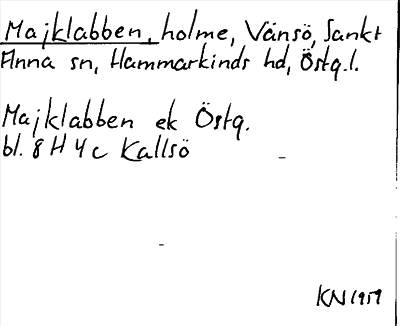 Majklabben, holme, Vänsö, Sankt
Anna sn, Hammarkinds hd, Östg.l.
Majklabben ek Östg.
bl. 8 H 4 c Kallsö
KN 1959